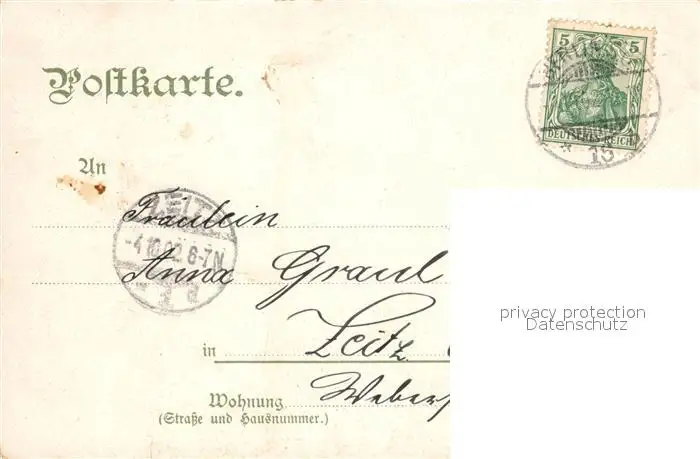 5 5
DEUTSCHES REICH
* 15
Postkarte.
An
ZEITZ
-4.10.02.6-7N
Fräulein
Anna Graul
in Zeitz
Weber
Wohnung
(Straße und Hausnummer.)
privacy protection
Datenschutz